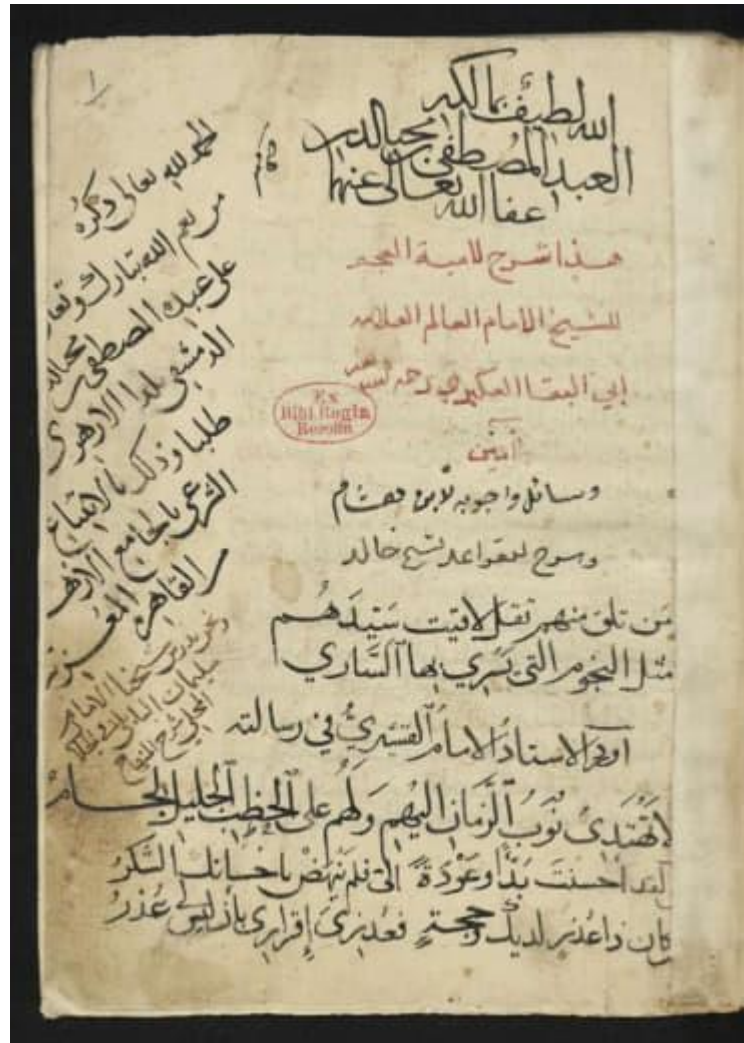 الله لطيف
العبد المصطفى بن محب الدين
عفا الله تعالى عنهما
هذا شرح لامية العجم
للشيخ الامام العالم العلامه
ابي البقا العكبري رحمه الله
آمين
Ex
Bibl. Regia
Berolin
وسائل واجوبه لابن هشام
وشرح القواعد للشيخ خالد
مَن تلق منهم تقل لاقيت سَيّدَهُم
مثل النجوم التي يَسْرِي بها السَّاري
الاستاذ الامام القشيري في رسالته
لا تَهْتَدِى نُوَبُ الزَّمانِ اليهم وَلَهُم على الخطب الجليل لجام
لقد احسنت بَدْأً وعَوْدةً الى فلم يَنْهَضْ باحسانك الشكرُ
فمن كان ذا عذر لديك وحجة فعذري إقراري بان ليس لي عُذرُ
الحمد لله تعالى وشكره
من نعم الله تبارك وتعالى
على عبده المصطفى بن محب الدين
الدمشقي بلدا الازهري
طلبا وذلك بالابتياع
الشرعي بالجامع الازهر
القاهرة المعزية
شيخنا الامام
سليمان البابلي